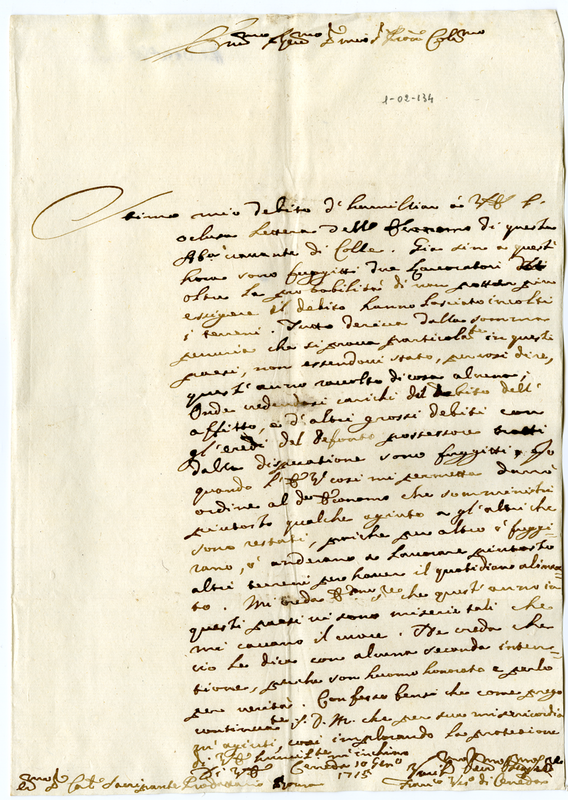 1-02-134
Stimo mio debito d'humiliar à V. E. l'
oclusa lettera dell' Economo di questa
Abatia vacante di Colle. Già sino a quest'
hora sono fuggitti due Lavoratori
oltre la probabilità di non potter più
essigere il debito hanno lasciato incolti
i terreni. Tutto deriva dalla somma
penuria che si prova particolarte in questi
paesi, non essendovi stato, per così dire,
quest' anno raccolto di cosa alcuna;
Onde vedendosi carichi del debito dell'
affitto, e d'altri grossi debiti con
gl' eredi del defonto possessore tratti
dalla disperatione sono fuggitti. Io
quando V. E. così mi permetta darò
ordine al do Economo che somministri
piutosto qualche agiuto a gl' altri che
sono restati, perche per altro ò fuggi-
rano, ò anderano a lavorare piutosto
altri terreni per haver il quotidiano alimen-
to. Mi creda che quest' anno in
questi paesi vi sono miserie tali che
mi cavano il cuore. Ne creda che
ciò le dica con alcuna seconda inten-
tione, perche son huomo honorato e parlo
per verità. Confesso bensi che come prego
continuate S. D. M. che per sua misericordia
ci agiuti, così implorando la protezione
di V. E. humilte m'inchino
Di V. E. Ceneda 10 Genro 1715
Card. Sacripante Prodattario Roma
Franco Vesco di Ceneda